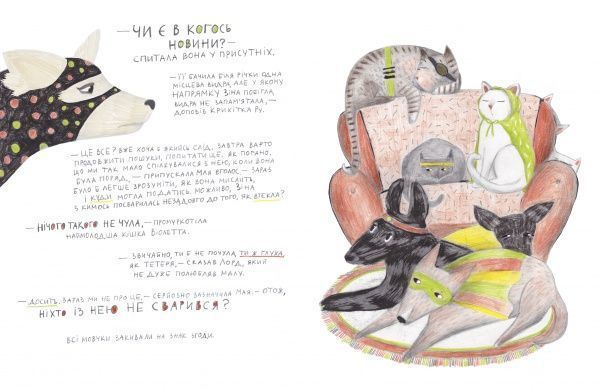 — ЧИ Є В КОГОСЬ
НОВИНИ? —
СПИТАЛА ВОНА У ПРИСУТНІХ.
— ЇЇ БАЧИЛА БІЛЯ РІЧКИ ОДНА
МІСЦЕВА ВИДРА, АЛЕ У ЯКОМУ
НАПРЯМКУ ЗІНА ПОБІГЛА,
ВИДРА НЕ ЗАПАМ'ЯТАЛА, —
ДОПОВІВ КРИХІТКА РУ.
— ЦЕ ВСЕ? ВЖЕ ХОЧ Є ЯКИЙСЬ СЛІД. ЗАВТРА ВАРТО
ПРОДОВЖИТИ ПОШУКИ, ПОПИТАТИ ЩЕ. ЯК ПОГАНО,
ЩО МИ ТАК МАЛО СПІЛКУВАЛИСЯ З НЕЮ, КОЛИ ВОНА
БУЛА ПОРЯД, — ПРИПУСКАЛА МАЯ ВГОЛОС, — ЗАРАЗ
БУЛО Б ЛЕГШЕ ЗРОЗУМІТИ, ЯК ВОНА МИСЛИТЬ,
І КУДИ МОГЛА ПОДАТИСЬ. МОЖЛИВО, ЗІНА
З КИМОСЬ ПОСВАРИЛАСЬ НЕЗАДОВГО ДО ТОГО, ЯК ВТЕКЛА?
— НІЧОГО ТАКОГО НЕ ЧУЛА, — ПРОМУРКОТІЛА
НАЙМОЛОДША КІШКА ВІОЛЕТТА.
— ЗВИЧАЙНО, ТИ Б НЕ ПОЧУЛА, ТИ Ж ГЛУХА,
ЯК ТЕТЕРЯ, — СКАЗАВ ЛОРД, ЯКИЙ
НЕ ДУЖЕ ПОЛЮБЛЯВ МАЛУ.
— ДОСИТЬ. ЗАРАЗ МИ НЕ ПРО ЦЕ, — СЕРЙОЗНО ЗАЗНАЧИЛА МАЯ. — ОТОЖ,
НІХТО ІЗ НЕЮ НЕ СВАРИВСЯ?
ВСІ МОВЧКИ ЗАКИВАЛИ НА ЗНАК ЗГОДИ.